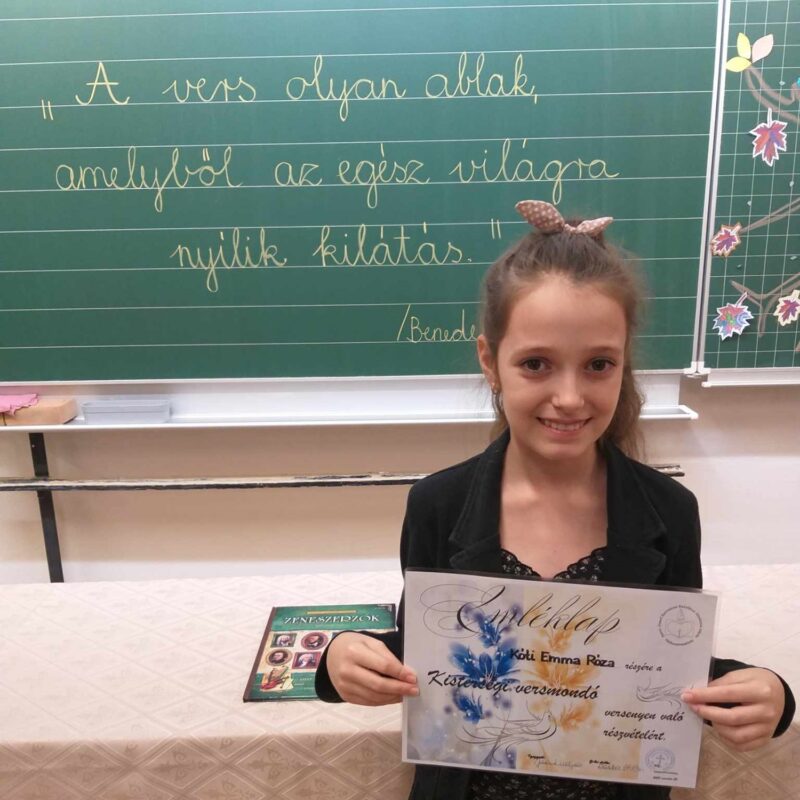 „A vers olyan ablak,
amelyből az egész világra
nyílik kilátás."
/Benede
ZENESZERZŐK
Emléklap
Kóti Emma Róza részére a
Kistérségi versmondó
versenyen való
részvételért.